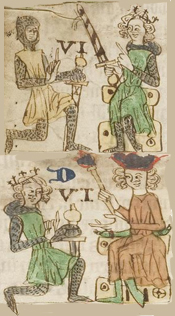 VI
D
VI